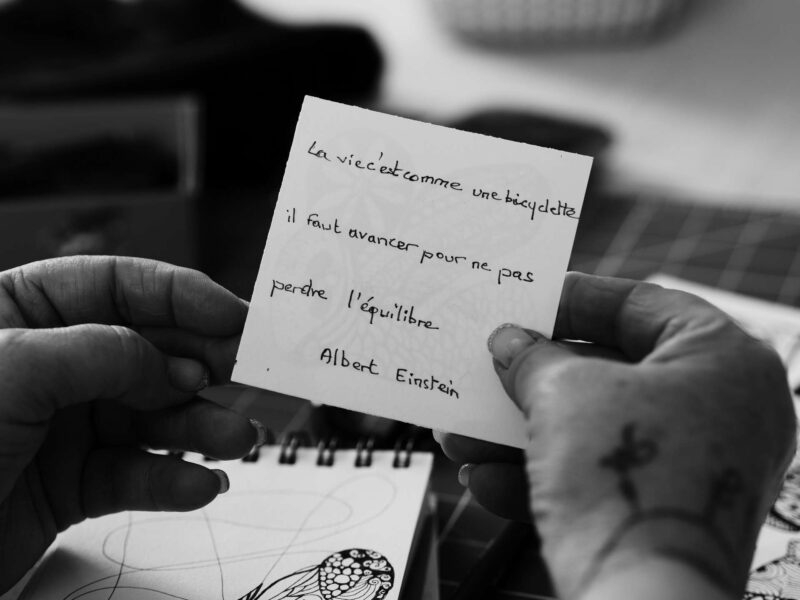 La vie c'est comme une bicyclette
il faut avancer pour ne pas
perdre l'équilibre
Albert Einstein